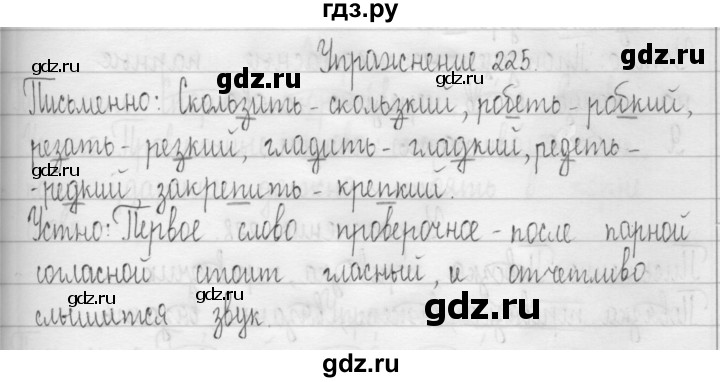 гдз.ру
Упражнение 225.
gdz.ru gdz.ru gdz.ru
Письменно: Скользить - скользкий, робеть - робкий,
gdz.ru gdz.ru
резать - резкий, гладить - гладкий, редеть -
- редкий, закрепить - крепкий.
gdz.ru gdz.ru
Устно: Первое слово проверочное - после парной
согласной стоит гласный, и отчетливо
gdz.ru gdz.ru gdz.ru
слышится звук.
gdz.ru